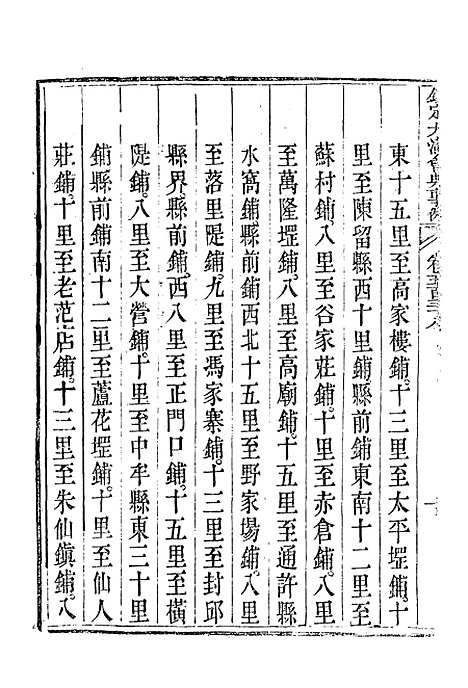 欽定大清會典事例
東十五里至高家樓鋪。十五里至太平堽鋪。十
里至陳留縣西十里鋪縣前鋪東南十二里至
蘇村鋪。八里至谷家莊鋪。十里至赤倉鋪。八里
至萬隆堽鋪。八里至高廟鋪。十五里至通許縣
水窩鋪。縣前鋪西北十五里至野家場鋪。八里
至落里隄鋪。九里至馮家寨鋪。十三里至封邱
縣界縣前鋪。西八里至正門口鋪。十五里至橫
隄鋪。八里至大營鋪。十里至中牟縣東三十里
鋪縣前鋪南十二里至蘆花堽鋪。十里至仙人
莊鋪。十里至老范店鋪。十三里至朱仙鎮鋪。八